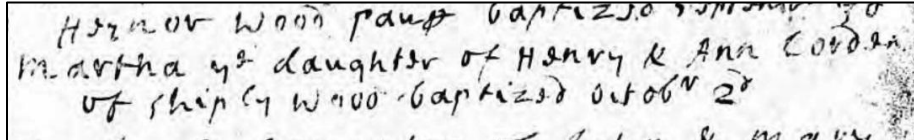 Heynor Wood paup baptized
Martha ye daughter of Henry & Ann Corden
of Shiply Wood baptized Octobr 2d
& Mary